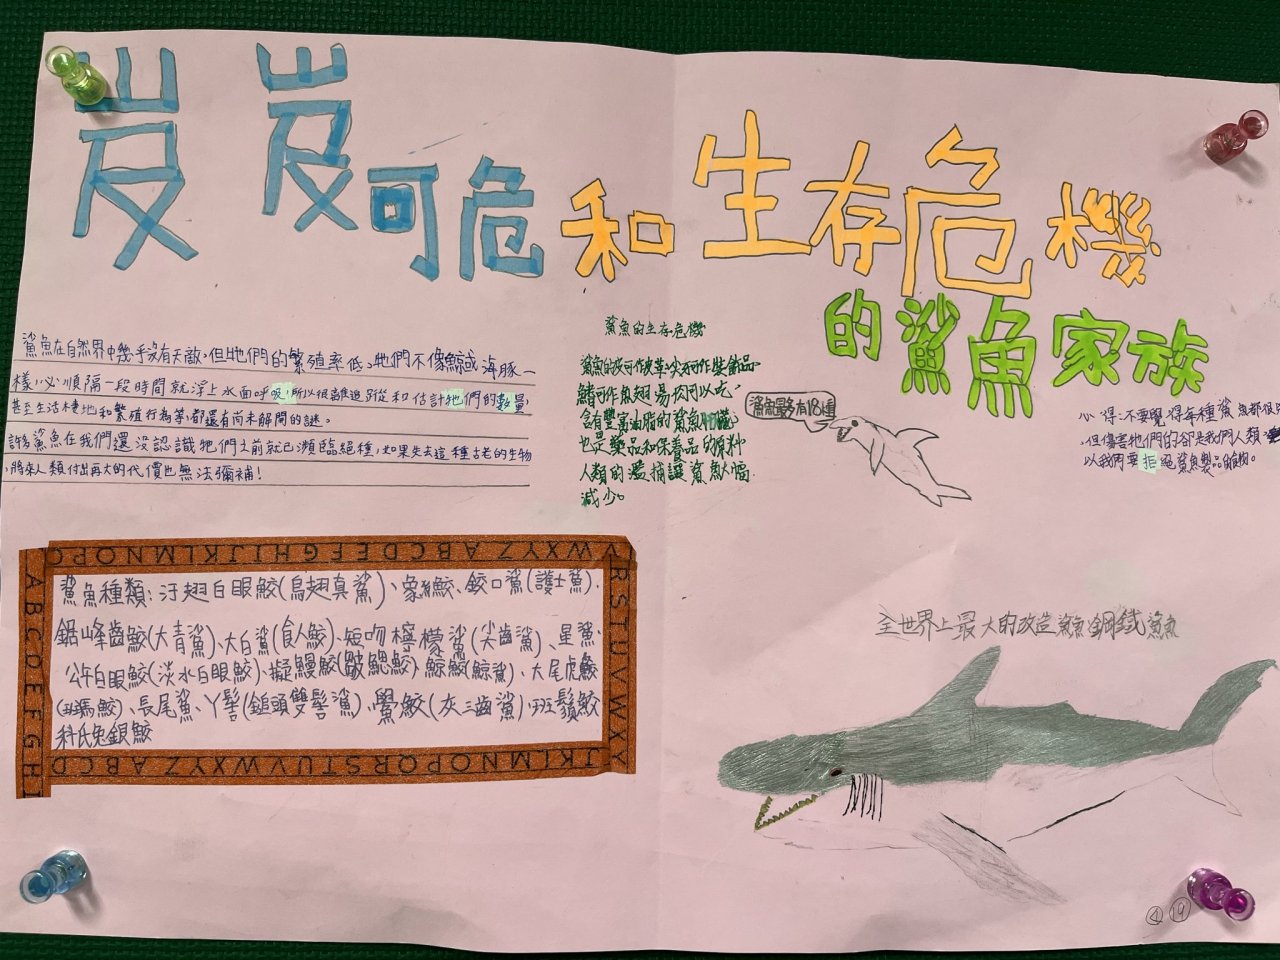 岌岌可危和生存危機
的鯊魚家族
鯊魚在自然界中幾乎沒有天敵,但牠們的繁殖率低。牠們不像鯨或海豚一
樣,必須隔一段時間就浮上水面呼吸,所以很難追蹤和估計牠們的數量,
甚至生活棲地和繁殖行為等都還有尚未解開的謎。
許多鯊魚在我們還沒認識牠們之前就已瀕臨絕種,如果失去這種古老的生物
,將來人類付出再大的代價也無法彌補!
鯊魚的生存危機
鯊魚的皮可作皮革,尖牙可作裝飾品,
鰭可作魚翅湯,肉可以吃,
含有豐富油脂的鯊魚肝臟
也是藥品和保養品的原料
人類的濫捕讓鯊魚大幅
減少。
鯊魚最多有18種
心得:不要覺得每種鯊魚都很
但傷害牠們的卻是我們人類
以我們要拒絕鯊魚製品食物。
鯊魚種類:汙翅白眼鮫(烏翅真鯊)、象鮫、鉸口鯊(護士鯊)、
鋸峰齒鮫(大青鯊)、大白鯊(食人鮫)、短吻檸檬鯊(尖齒鯊)、星鯊、
公牛白眼鮫(淡水白眼鮫)、擬鰻鮫(皺鰓鮫)、鯨鮫(鯨鯊)、大尾虎鮫
(斑馬鮫)、長尾鯊、丫髻(鎚頭雙髻鯊)、鱟鮫(灰三齒鯊)、斑鬚鮫
科氏兔銀鮫
全世界上最大的改造鯊魚鋼鐵鯊魚
④ ⑲
A B C D E F G H I
O P Q N M L K J I H G F E D C B A Z Y X W V
R S T U V W X Y
D C B A Z Y X W V U T S R Q P O N M L K J